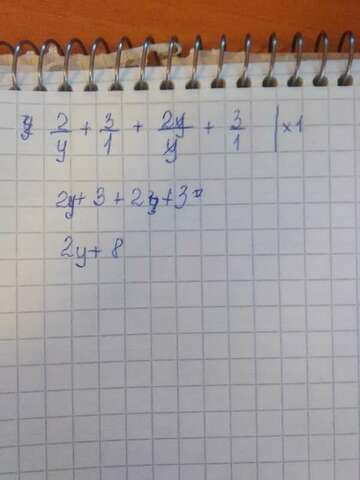 2/y + 3/1 + 2y/y + 3/1 | ×1
2y + 3 + 2 + 3
2y + 8